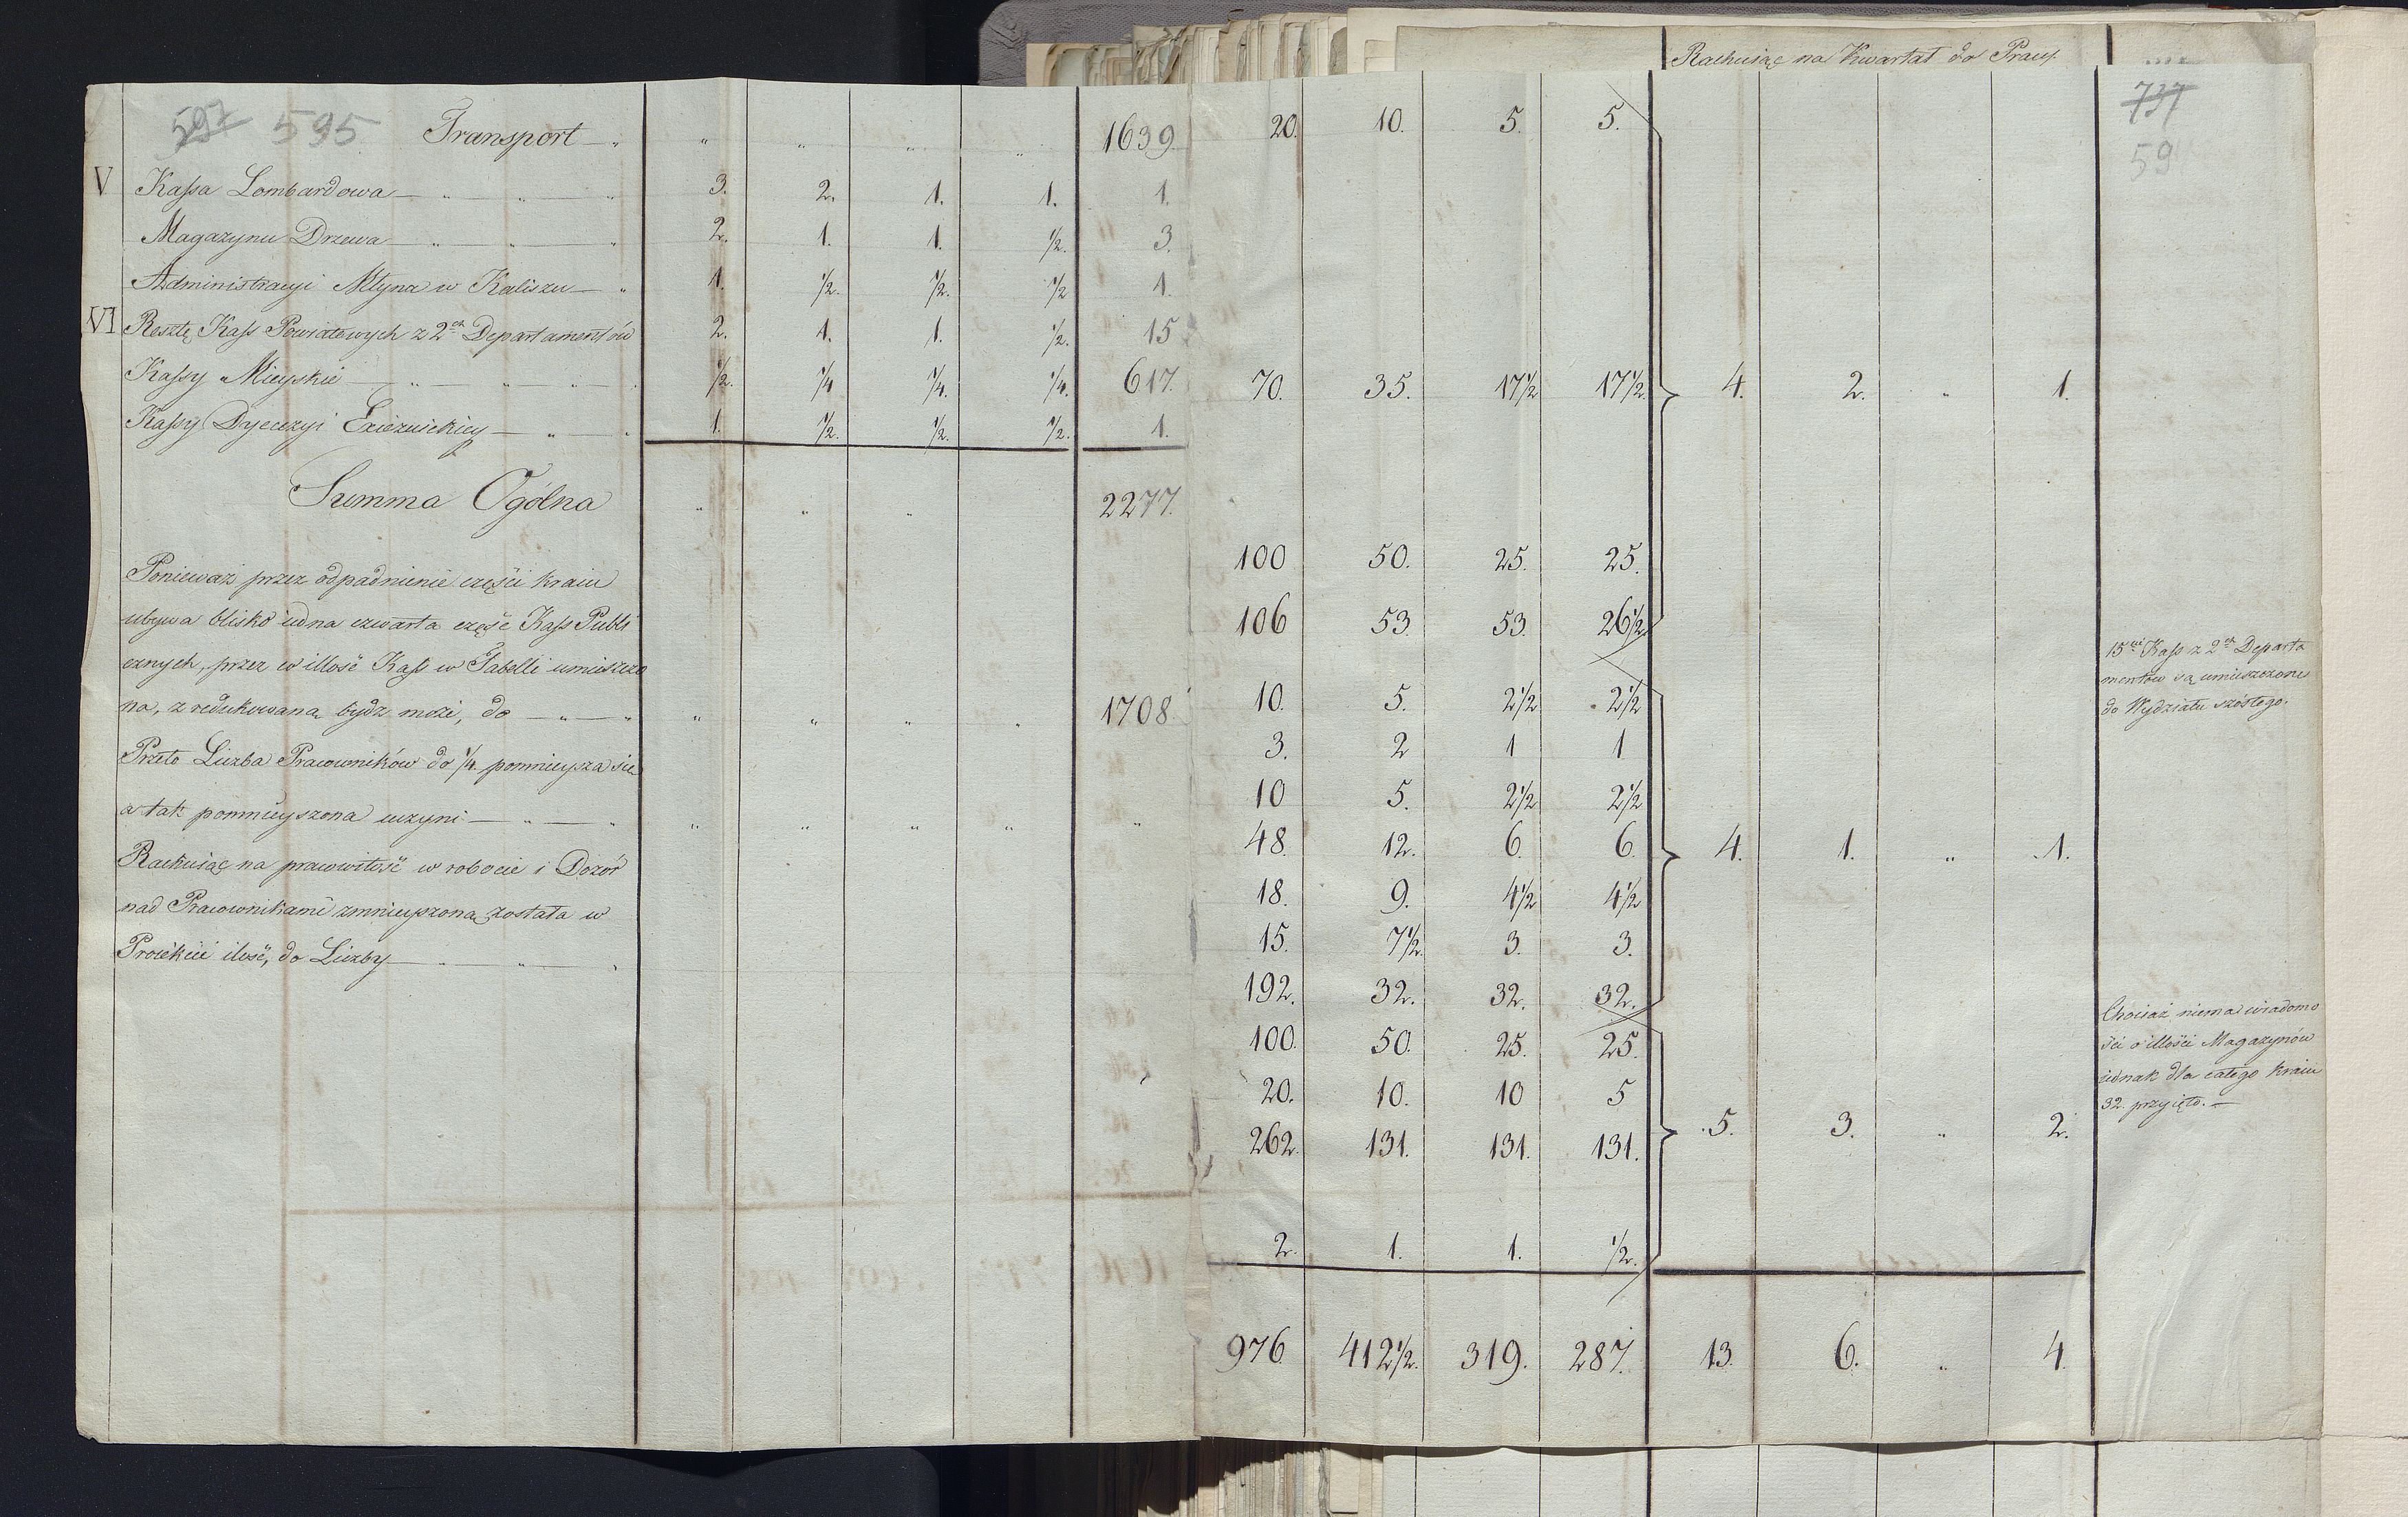 Rachuiąc na Kwartał do Pracy
597 595 Transport — „ „ „ „ „ 1639.
V Kassa Lombardowa — „ — „ — „ 3. 2. 1. 1. 1.
Magazynu Drzewa — „ — „ — „ 2. 1. 1. 1/2. 3.
Administracyi Młyna w Kaliszu — „ 1. 1/2. 1/2. 1/2 1.
VI Resztę Kass Powiatowych z 2ch Departamentów 2. 1. 1. 1/2. 15
Kassy Mieyskie — „ — „ — „ — 1/2. 1/4 1/4. 1/4. 617.
Kassy Dyecezyi — „ — „ 1. 1/2. 1/2. 1/2. 1.
Summa Ogólna „ „ „ 2277.
Ponieważ przez odpadnienie części kraiu
ubywa blisko iedna czwarta część Kass Publi
cznych, przez w illość Kass w Tabelli umieszczo
na, zredukowaną bydz może, do — „ — „ „ „ „ „ 1708
Przeto Liczba Pracowników do 1/4. pomnieysza się
a tak pomnieyszona uczyni — „ — „ „ „ „ „ „
Rachuiąc na pracowitość w robocie i Dozór
nad Pracownikami zmnieyszoną została w
Proiekcie ilość, do Liczby — „ — „ —
20. 10. 5. 5.
70. 35. 17 1/2 17 1/2. 4. 2. „ 1.
100 50. 25. 25.
106 53. 53. 26 1/2
10. 5. 2 1/2 2 1/2
3. 2 1 1
10 5. 2 1/2 2 1/2
48. 12. 6. 6. 4. 1. „ 1.
18. 9. 4 1/2 4 1/2
15. 7 1/2. 3. 3.
192. 32. 32. 32.
100. 50. 25. 25.
20. 10. 10 5
262. 131. 131. 131. 5. 3. „ 2.
2. 1. 1. 1/2.
976 412 1/2. 319. 287. 13. 6. „ 4.
737
59
15cie Kass z 2ch Departa
mentów są umieszczone
do Wydziału szóstego.
Chociaż niema wiadomo
ści o illości Magazynów
iednak dla całego kraiu
32. przyięto. —